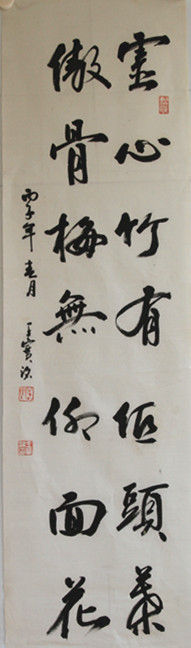 靈心竹有低頭葉
傲骨梅無仰面花
丙子年春月
王寶洺